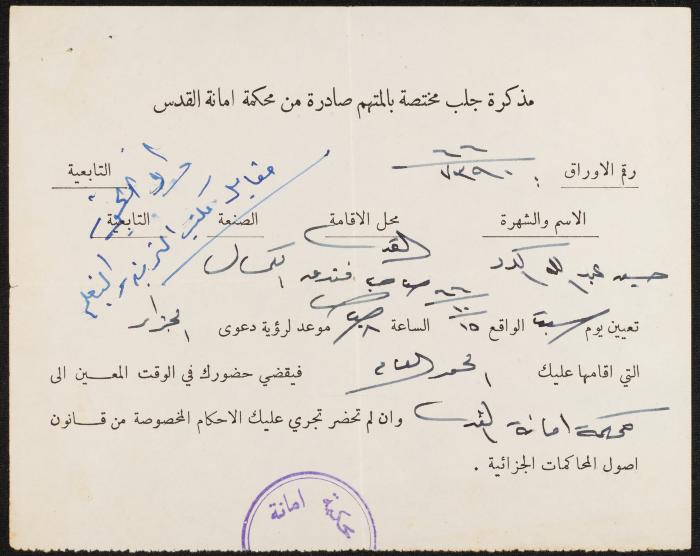 مذكرة جلب مختصة بالمتهم صادرة من محكمة امانة القدس
رقم الاوراق : ٦٦ / ٧٣٩٠ التابعية
الاسم والشهرة محل الاقامة الصنعة التابعية
مقابل مكتب التربية والتعليم
عبد الله القدس صاحب فندق الكمال
تعيين يوم سبت الواقع ١٥ / ١٠ / ٦٦ الساعة ٨ صباحا موعد لرؤية دعوى الجزاء
التي اقامها عليك الحق العام فيقضي حضورك في الوقت المعـين الى
محكمة امانة القدس وان لم تحضر تجري عليك الاحكام المخصوصة من قـانون
اصول المحاكمات الجزائية .
محكمة امانة